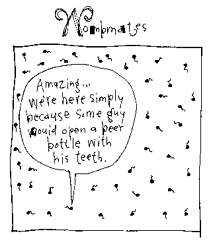 Wombmates
Amazing...
We're here simply
because some guy
would open a beer
bottle with
his teeth.